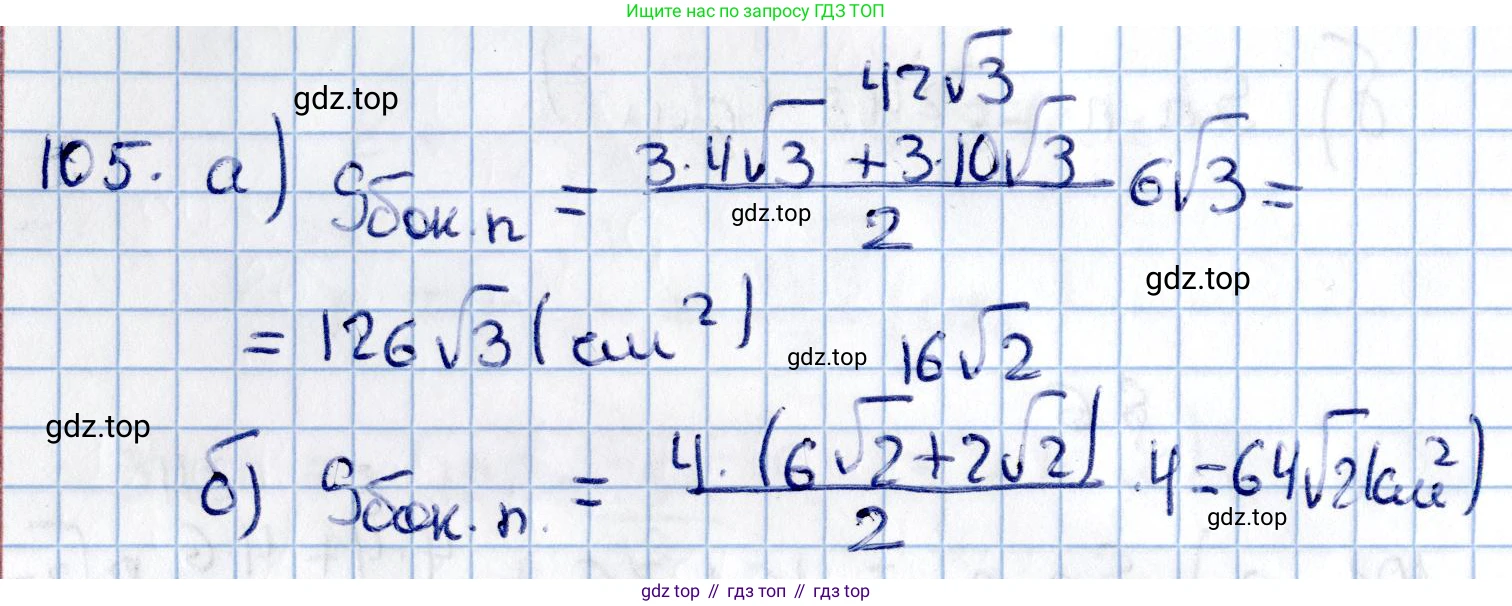 Ищите нас по запросу ГДЗ ТОП
gdz.top
42√3
105. а) Sбок.п = (3·4√3 + 3·10√3)/2 6√3 =
gdz.top
gdz.top
= 126√3 (см²)
gdz.top
16√2
gdz.top
б) Sбок.п. = 4·(6√2+2√2)/2 ·4 = 64√2 (см²)
gdz.top
gdz.top // гдз топ // гдз.top